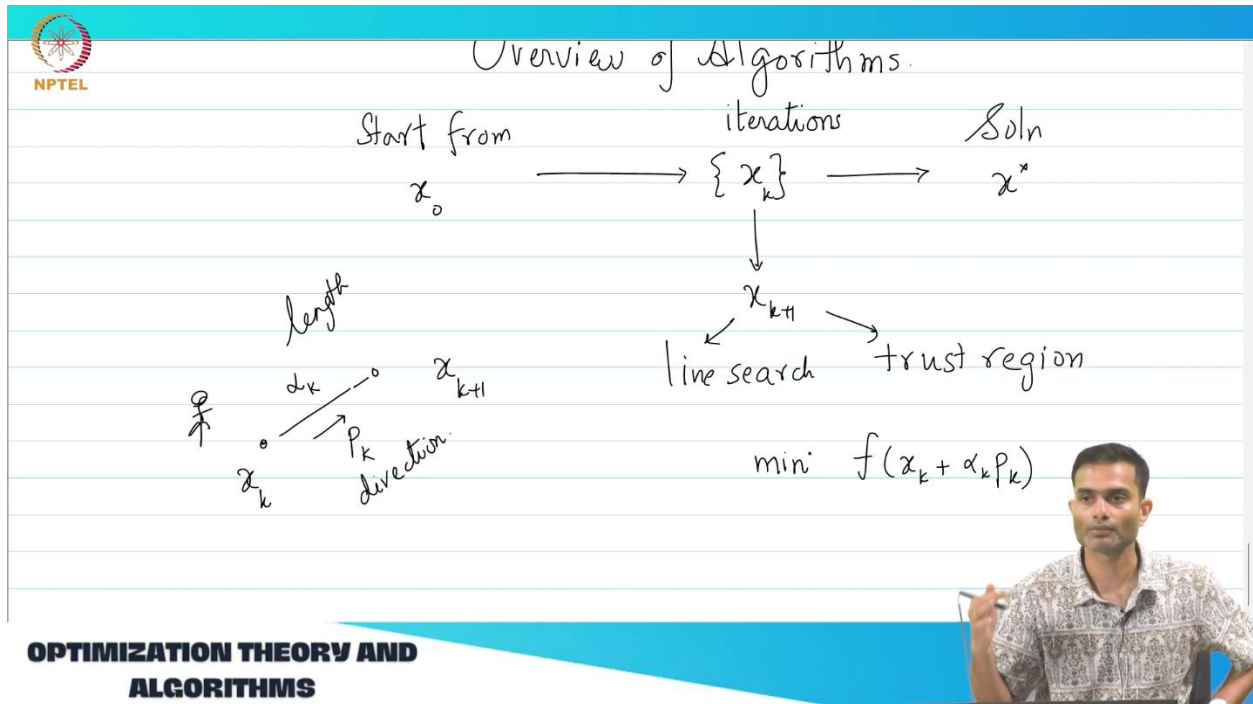 NPTEL
Overview of Algorithms.
Start from
iterations
Soln
x₀ ⟶ {x_k} ⟶ x*
x_{k+1}
line search
trust region
length
α_k
x_{k+1}
x_k
p_k
direction.
min f(x_k + α_k p_k)
OPTIMIZATION THEORY AND
ALGORITHMS